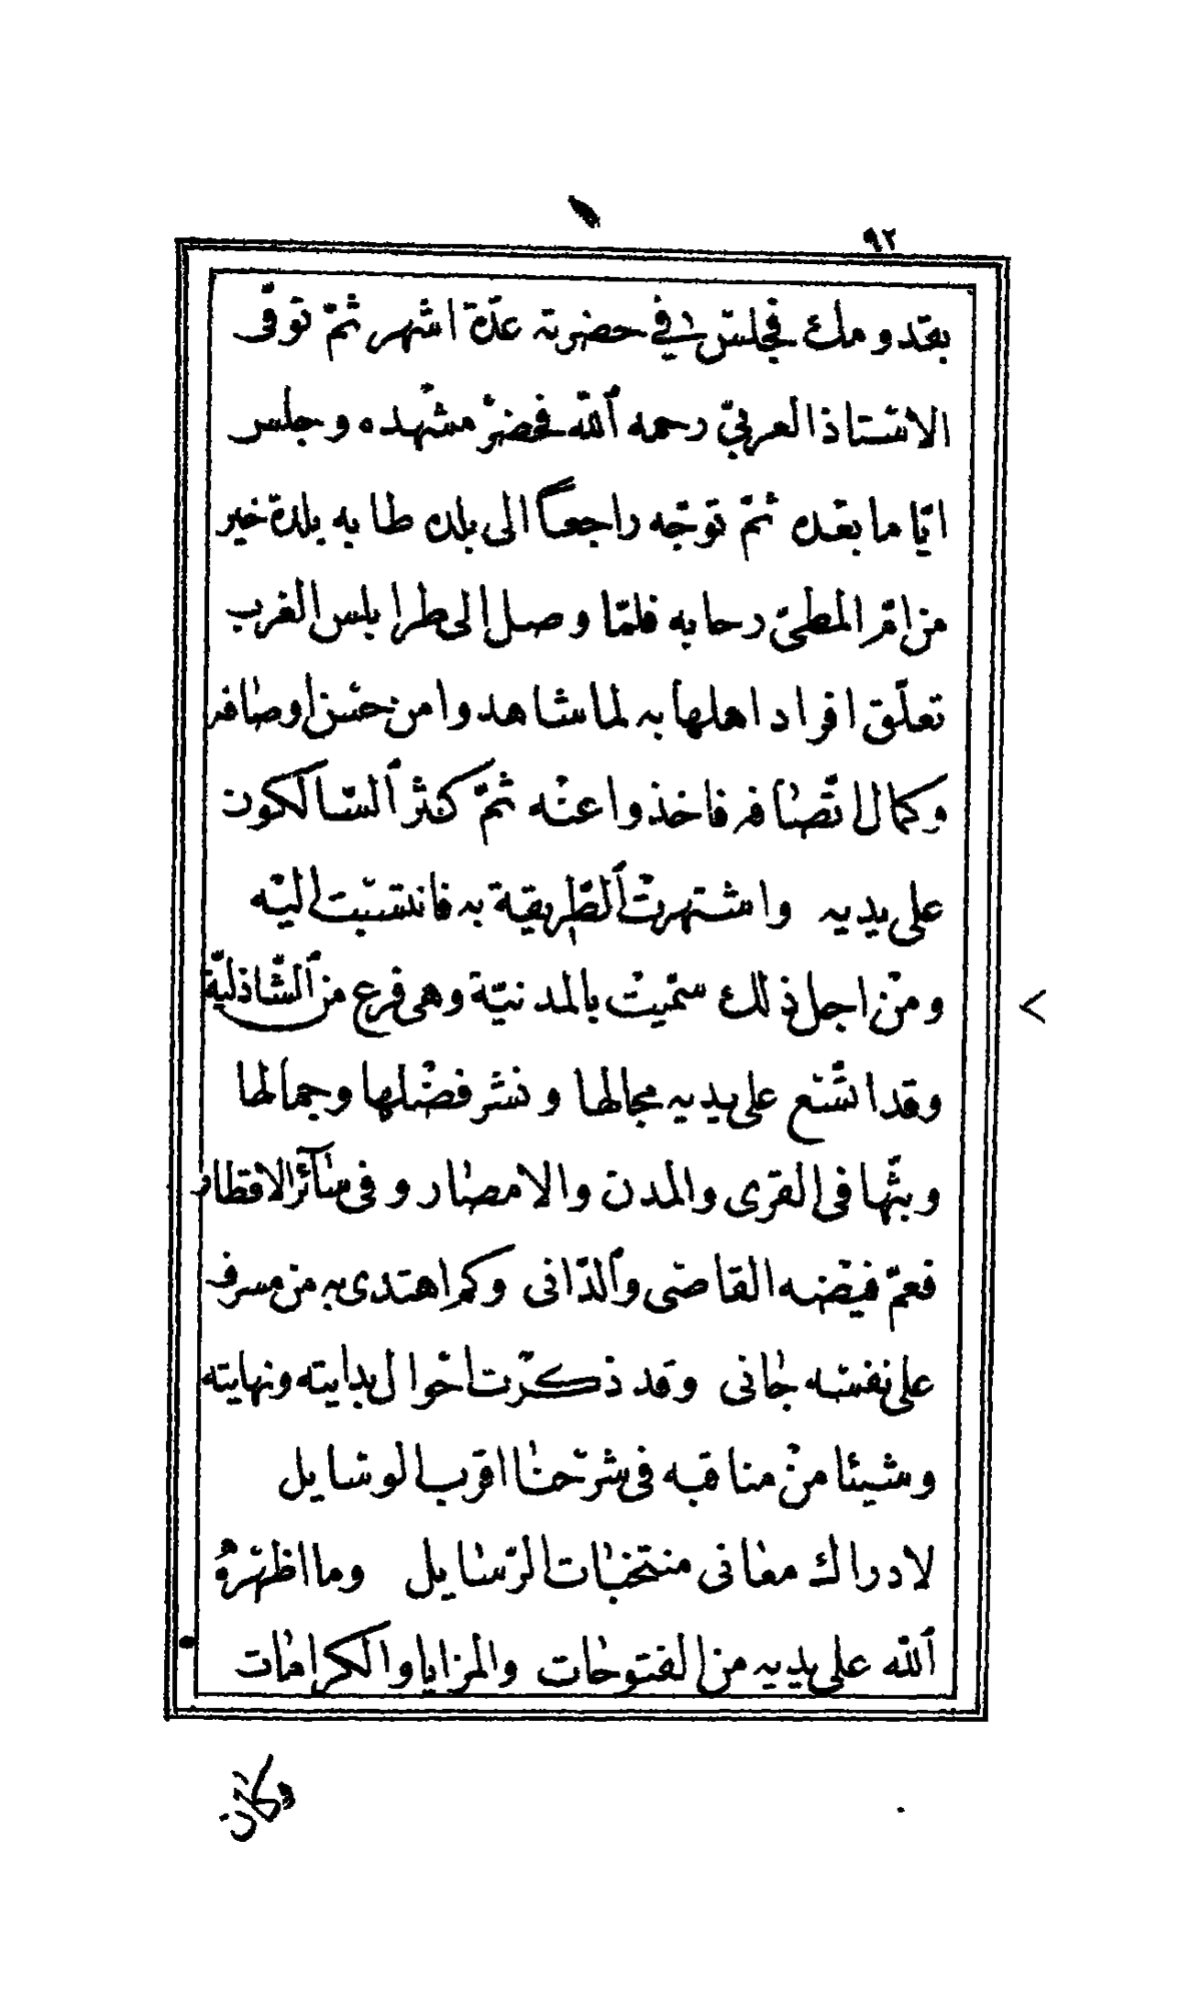 ٩٢
بقدومك فجلس في حضرته عدة اشهر ثمّ توفّى
الاستاذ العربيّ رحمه ٱللّه فحضر مشهده وجلس
ايّاما بعده ثمّ توجّه راجعاً الى بلده طابه بلدة خير
من امّ المطيّ رحابه فلمّا وصل الى طرابلس الغرب
تعلّق افراد اهلها به لما شاهدوا من حسن اوصافه
وكمال اتّصافه فاخذوا عنه ثمّ كثر ٱلسّالكون
على يديه واشتهرت ٱلطّريقة به فانتسبت اليه
ومن اجل ذلك سمّيت بالمدنيّة وهى فرع من ٱلشّاذليّة
وقد اتّسع على يديه مجالها ونشر فضلها وجمالها
وبثّها فى القرى والمدن والامصار وفى سآئر الاقطار
فعمّ فيضه القاصى وٱلدّانى وكم اهتدى به من مسرف
على نفسه جانى وقد ذكرت احوال بدايته ونهايته
وشيئا من مناقبه فى شرحنا اقرب الوسايل
لادراك معانى منتخبات الرّسايل وما اظهرهُ
ٱللّه على يديه من الفتوحات والمزايا والكرامات
وكان